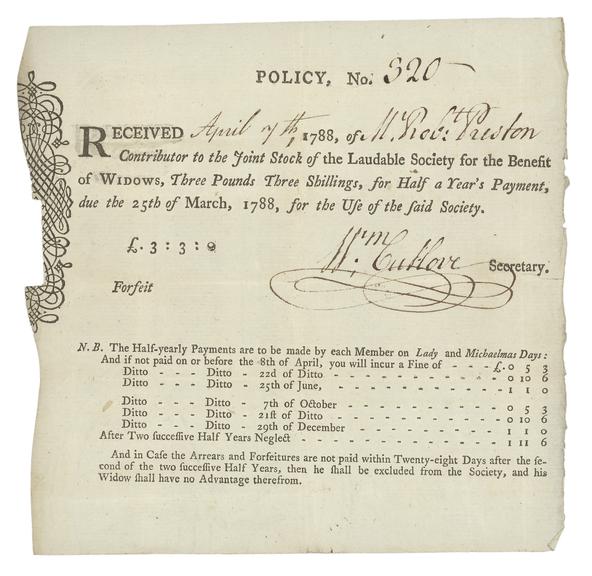 POLICY, No. 320
RECEIVED April 7th, 1788, of Mr Robt. Preston
Contributor to the Joint Stock of the Laudable Society for the Benefit
of WIDOWS, Three Pounds Three Shillings, for Half a Year's Payment,
due the 25th of March, 1788, for the Uſe of the ſaid Society.
£. 3 : 3 : 0
Wm. Cutlove Secretary.
Forfeit
N. B. The Half-yearly Payments are to be made by each Member on Lady and Michaelmas Days:
And if not paid on or before the 8th of April, you will incur a Fine of - - - £. 0 5 3
Ditto - - - Ditto - 22d of Ditto - - - - - - - - - - - 0 10 6
Ditto - - - Ditto - 25th of June, - - - - - - - - - - 1 1 0
Ditto - - - Ditto - 7th of October - - - - - - - - - 0 5 3
Ditto - - - Ditto - 21ſt of Ditto - - - - - - - - - - 0 10 6
Ditto - - - Ditto - 29th of December - - - - - - - - 1 1 0
After Two ſucceſſive Half Years Neglect - - - - - - - - - - 1 11 6
And in Caſe the Arrears and Forfeitures are not paid within Twenty-eight Days after the ſe-
cond of the two ſucceſſive Half Years, then he ſhall be excluded from the Society, and his
Widow ſhall have no Advantage therefrom.